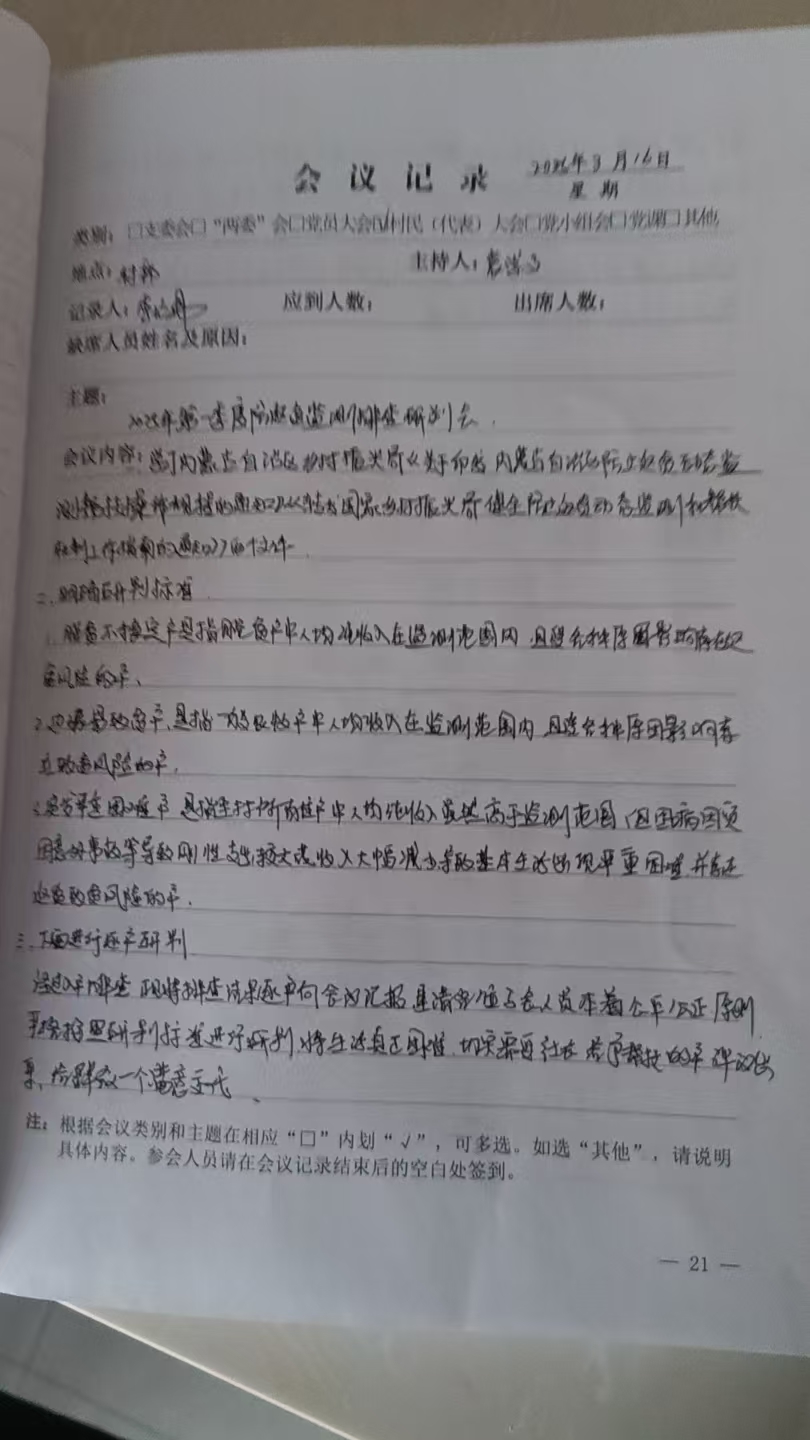 会议记录 年3月16日
星期
类别：□支委会□“两委”会□党员大会☑村民（代表）大会□党小组会□党课□其他
地点：村部 主持人：
记录人： 应到人数： 出席人数：
缺席人员姓名及原因：
主题：
年第一季度防返贫监测排查研判会.
会议内容：内蒙古自治区乡村振兴局《关于印发内蒙古自治区防止返贫动态监
测帮扶操作规程的通知》以及国家乡村振兴局健全防止返贫动态监测和帮扶
机制工作指南的通知》的文件.
二、明确研判标准.
1.脱贫不稳定户是指脱贫户中人均纯收入在监测范围内且综合排原因影响存在返
贫风险的户、
2.边缘易致贫户,是指一般农牧户中人均收入在监测范围内且综合排原因影响存
在致贫风险的户.
3.突发严重困难户是指全村所有农户中人均纯收入虽然高于监测范围,但因病因灾
因意外事故等导致刚性支出较大或收入大幅减少导致基本生活出现严重困难并存在
返贫致贫风险的户.
三、下面进行逐户研判
经过入户排查现将排查结果逐户向会议汇报,请各位与会人员本着公平公正原则
严格按照研判标准进行研判,将生活真正困难,切实需要给予帮扶的户评议出
来,给群众一个满意交代、
注：根据会议类别和主题在相应“□”内划“√”，可多选。如选“其他”，请说明
具体内容。参会人员请在会议记录结束后的空白处签到。
— 21 —